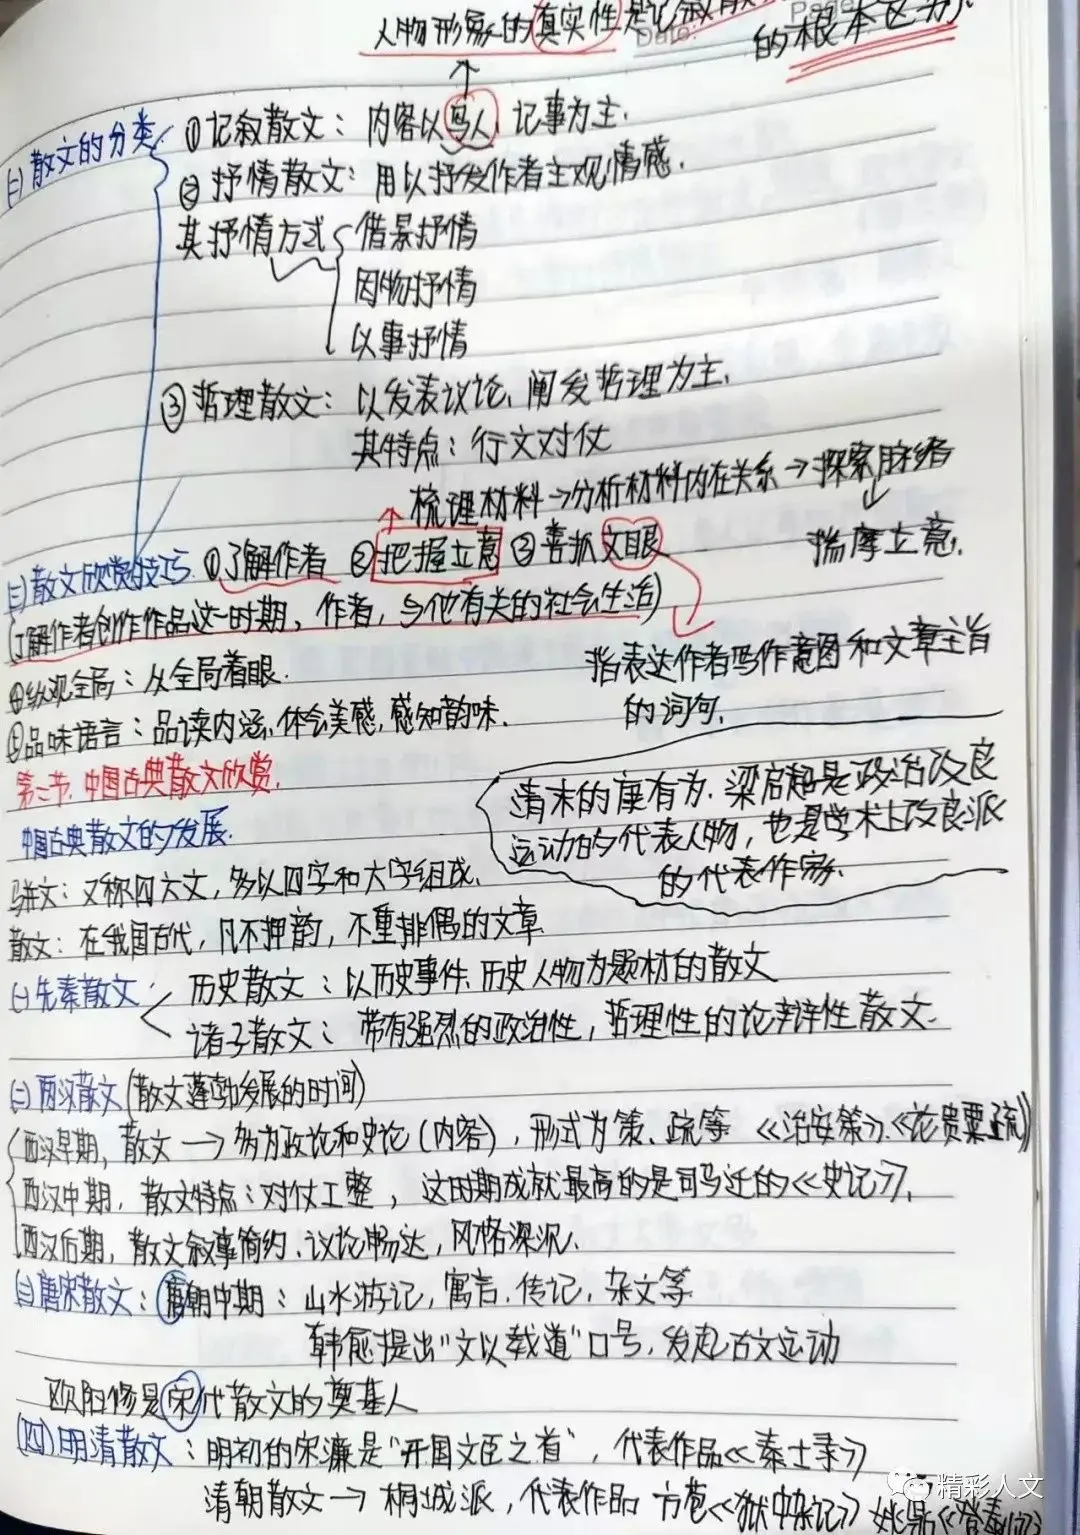 人物形象的真实性是记叙散文
Page:
Date:
的根本区分
(二)散文的分类
①记叙散文：内容以写人、记事为主.
②抒情散文：用以抒发作者主观情感.
其抒情方式
借景抒情
因物抒情
以事抒情
③哲理散文：以发表议论、阐发哲理为主.
其特点：行文对仗
梳理材料→分析材料内在关系→探索脉络
揣摩立意.
(三)散文欣赏的技巧. ①了解作者 ②把握立意 ③善抓文眼
(了解作者创作作品这一时期, 作者, 与他有关的社会生活)
指表达作者写作意图和文章主旨
的词句.
④纵观全局：从全局着眼.
⑤品味语言：品读内涵,体会美感,感知韵味.
第二节.中国古典散文欣赏.
中国古典散文的发展.
清末的康有为.梁启超是政治改良
运动的代表人物,也是学术上改良派
的代表作家.
骈文：又称四六文,多以四字和六字组成.
散文：在我国古代,凡不押韵,不重排偶的文章
(一)先秦散文
历史散文：以历史事件、历史人物为题材的散文
诸子散文：带有强烈的政治性,哲理性的论辩性散文.
(二)两汉散文(散文蓬勃发展的时间)
西汉早期,散文→多为政论和史论(内容),形式为策、疏等 《治安策》.《论贵粟疏》
西汉中期,散文特点：对仗工整,这时期成就最高的是司马迁的《史记》.
西汉后期,散文叙事简约、议论畅达,风格深沉.
(三)唐宋散文：唐朝中期：山水游记,寓言.传记,杂文等
韩愈提出“文以载道”口号,发起古文运动
欧阳修是宋代散文的奠基人
(四)明清散文：明初的宋濂是“开国文臣之首”,代表作品《秦士录》
清朝散文→桐城派,代表作品 方苞《狱中杂记》姚鼐《登泰山》
精彩人文